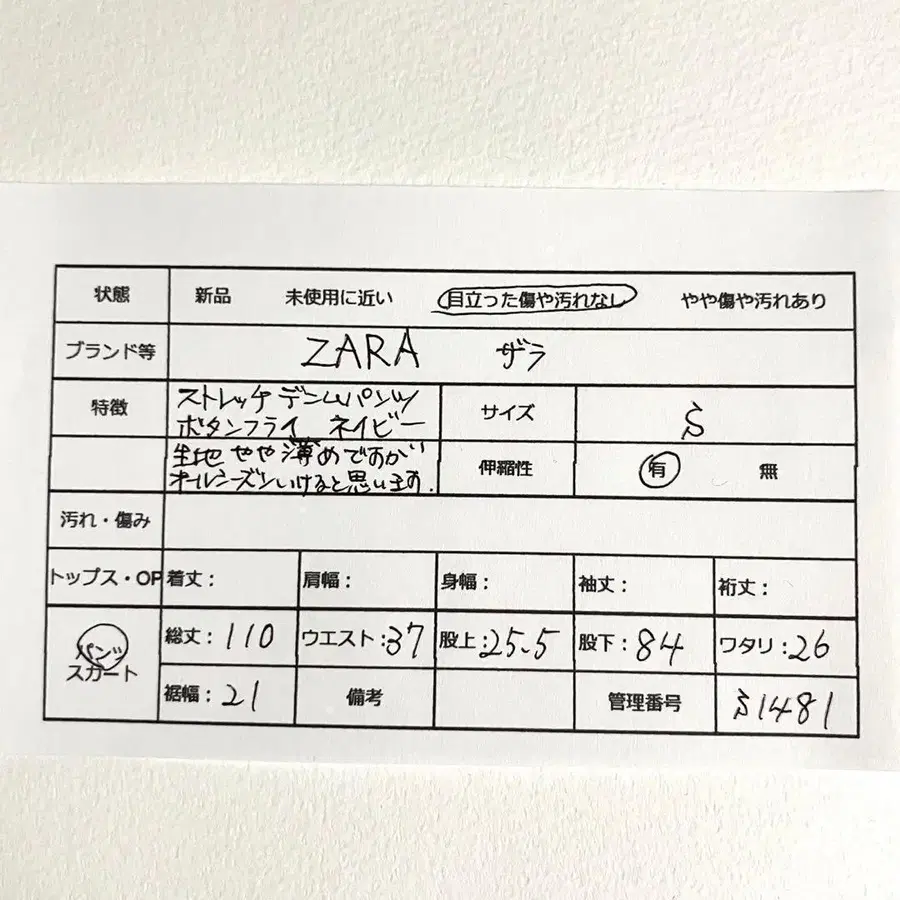 状態 新品 未使用に近い 目立った傷や汚れなし やや傷や汚れあり
ブランド等 ZARA ザラ
特徴 ストレッチデニムパンツ
ボタンフライ ネイビー
サイズ
生地やや薄めですが
オールシーズンいけると思います.
伸縮性 有 無
汚れ・傷み
トップス・OP 着丈: 肩幅: 身幅: 袖丈: 裄丈:
パンツ
スカート
総丈:110 ウエスト:37 股上:25.5 股下:84 ワタリ:26
裾幅:21 備考 管理番号 1481